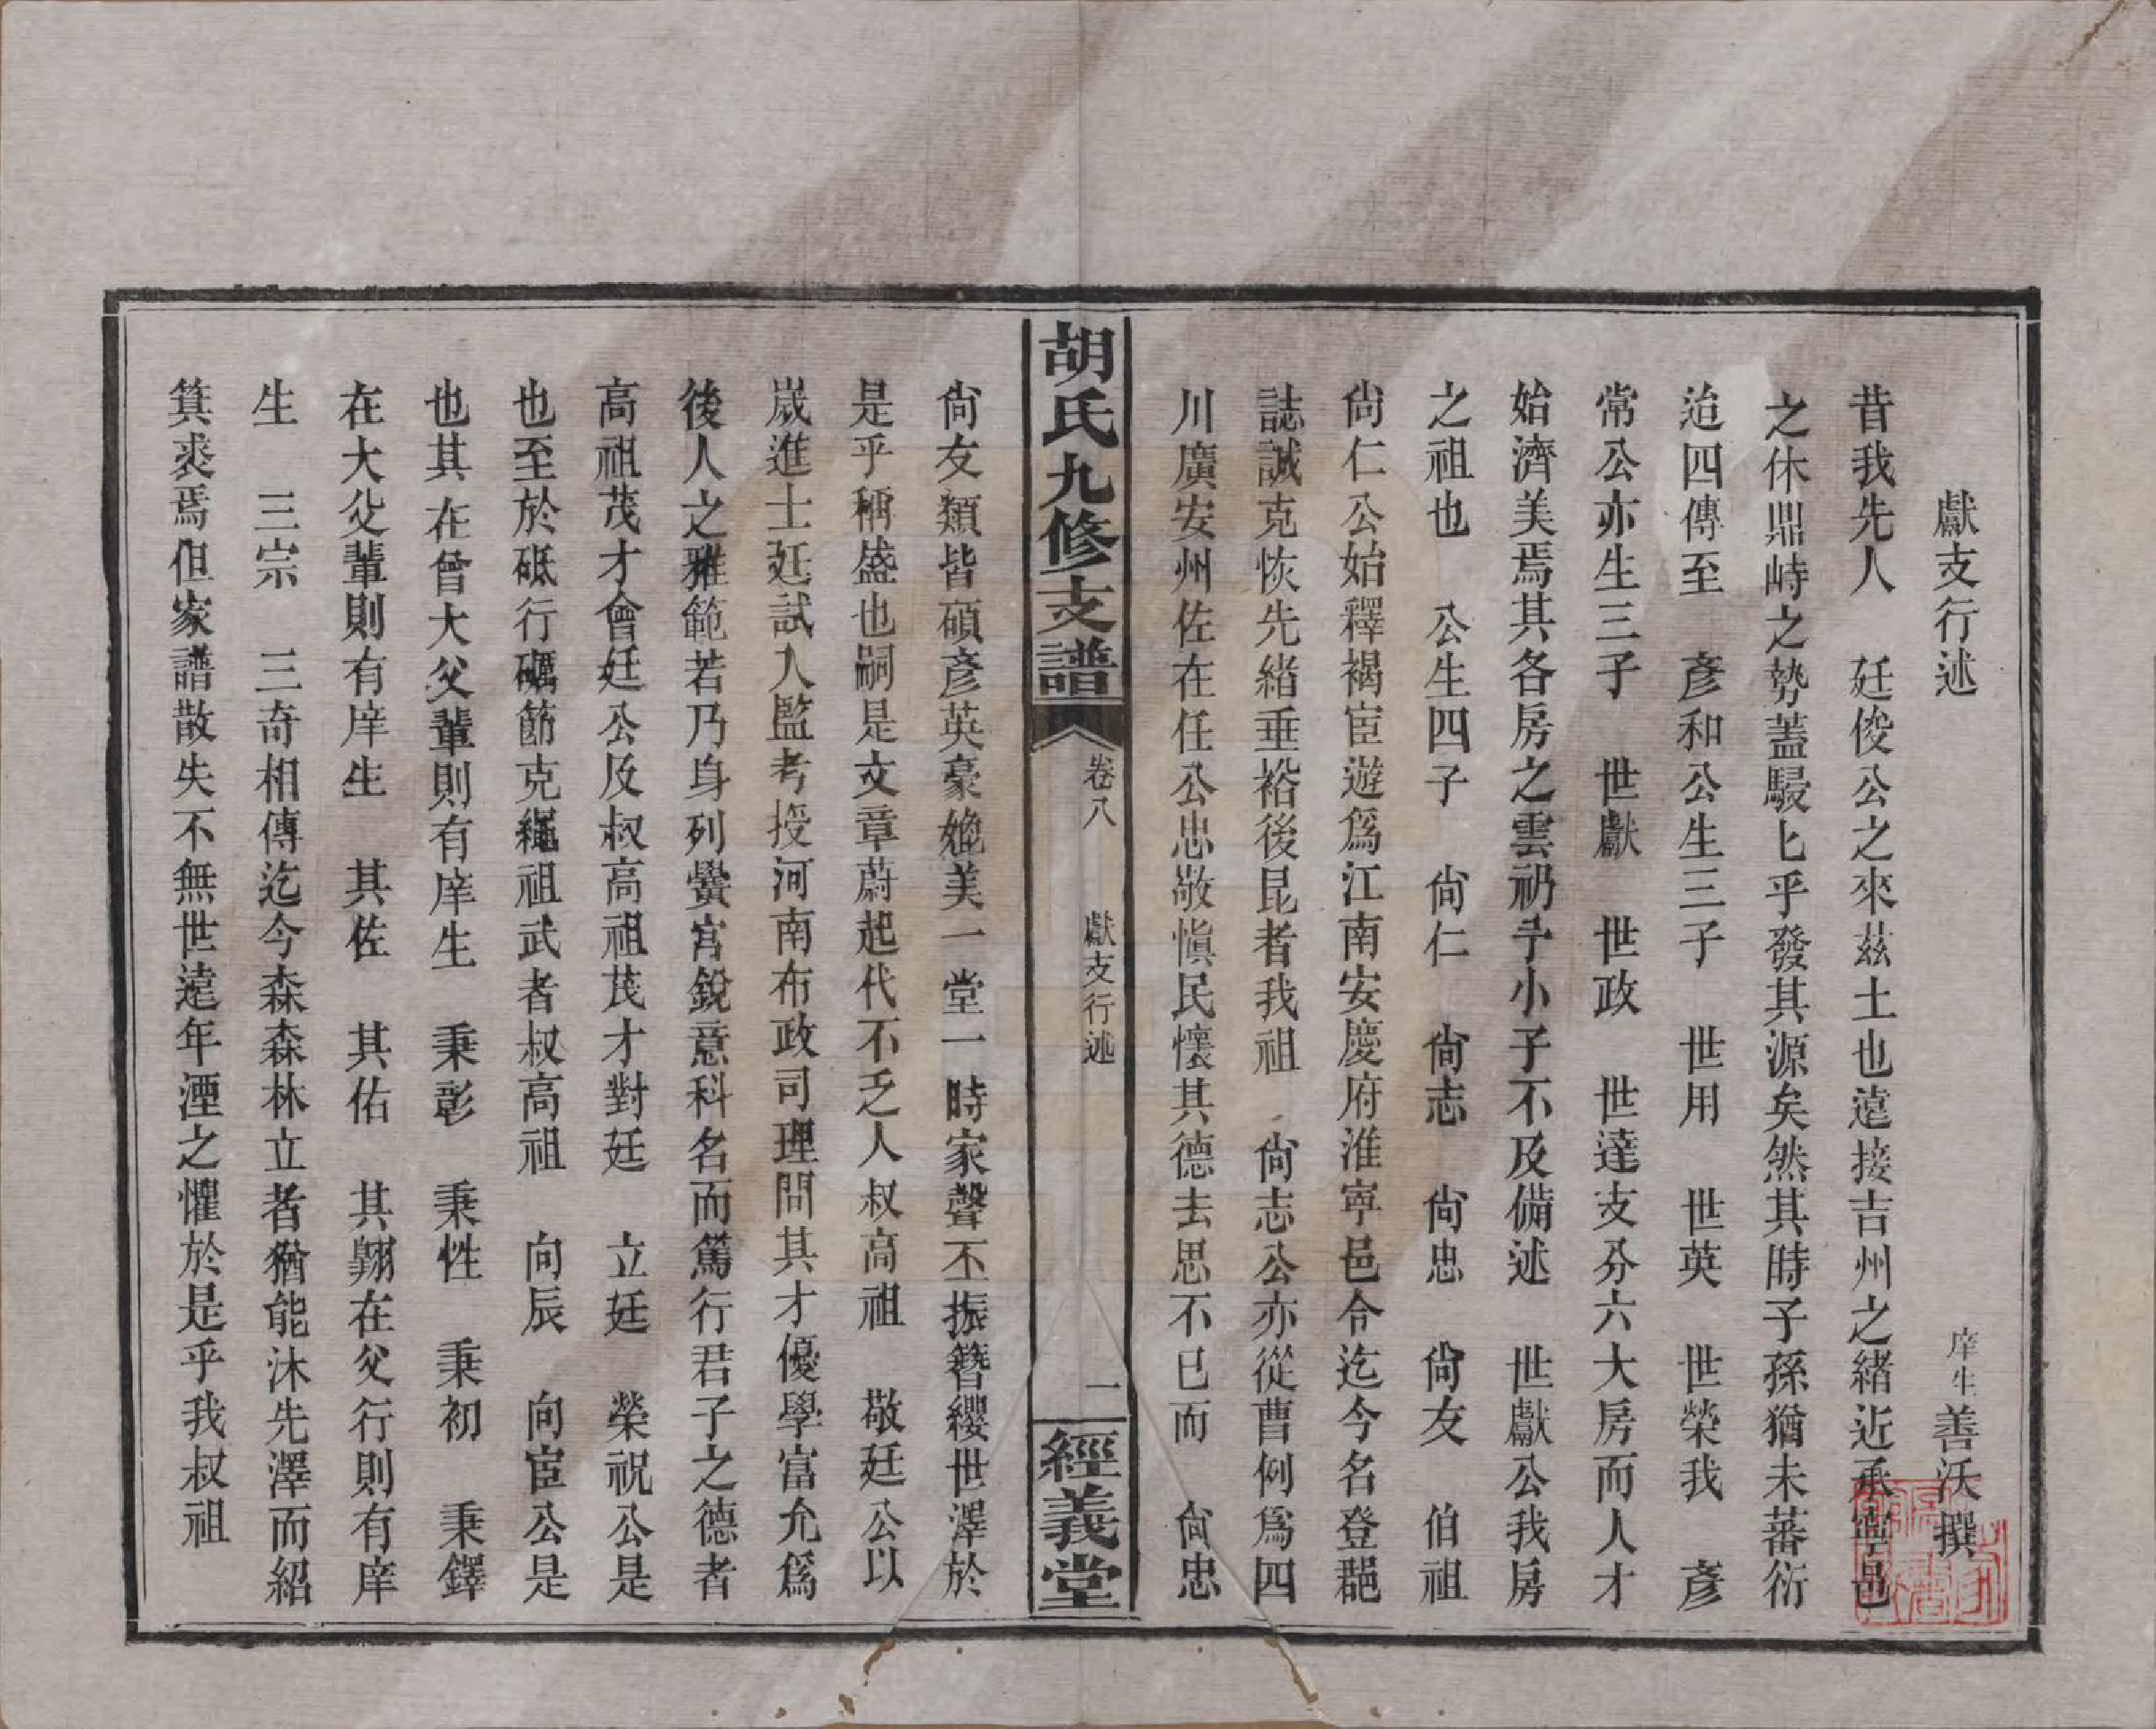 獻支行述
庠生善沃撰
昔我先人　廷俊公之來茲土也遠接吉州之緒近承寧邑
之休鼎峙之勢蓋駸匕乎發其源矣然其時子孫猶未蕃衍
迨四傳至　彥和公生三子　世用　世英　世榮我　彥
常公亦生三子　世獻　世政　世達支分六大房而人才
始濟美焉其各房之雲礽予小子不及備述　世獻公我房
之祖也　公生四子　尙仁　尙志　尙忠　尙友　伯祖
尙仁公始釋褐宦遊爲江南安慶府淮寧邑令迄今名登郡
誌誠克恢先緒垂裕後昆者我祖　尙志公亦從曹例爲四
川廣安州佐在任公忠敬愼民懷其德去思不已而　尙忠
胡氏九修支譜
卷八
獻支行述
二
經義堂
尙友類皆碩彥英豪媲美一堂一時家聲丕振簪纓世澤於
是乎稱盛也嗣是文章蔚起代不乏人叔高祖　敬廷公以
歲進士廷試入監考授河南布政司理問其才優學富允爲
後人之雅範若乃身列黌宮銳意科名而篤行君子之德者
高祖茂才會廷公及叔高祖茂才對廷　立廷　榮祝公是
也至於砥行礪節克繩祖武者叔高祖　向辰　向宦公是
也其在曾大父輩則有庠生　秉彰　秉性　秉初　秉鐸
在大父輩則有庠生　其佐　其佑　其翺在父行則有庠
生　三宗　三奇相傳迄今森森林立者猶能沐先澤而紹
箕裘焉但家譜散失不無世遠年湮之懼於是乎我叔祖